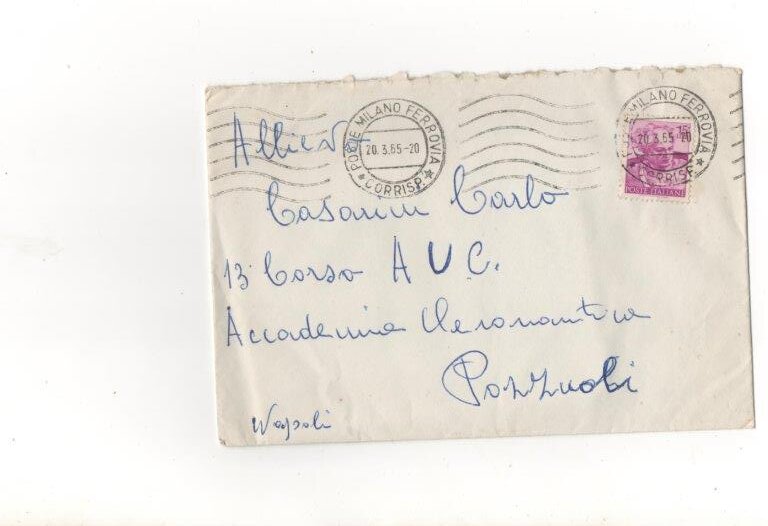 POSTE MILANO FERROVIA
20.3.65-20
CORRISP.
MILANO FERROVIA
20.3.65-20
CORRISP.
POSTE ITALIANE
Allievo
Casarini Carlo
13 Corso A U C.
Accademia Aeronautica
Pozzuoli
Napoli